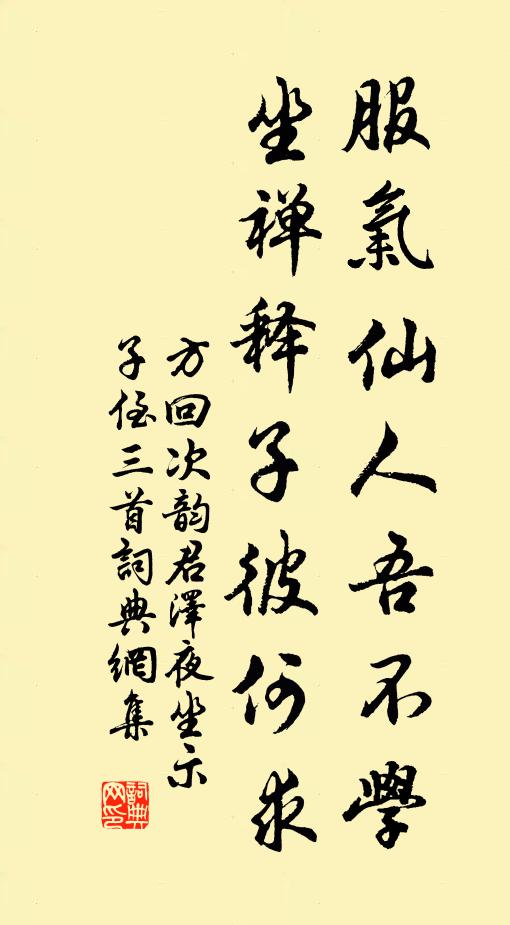 服氣仙人吾不學
坐禅释子彼何求
方回次韵君澤夜坐示
子侄三首詞典網集
詞典網印